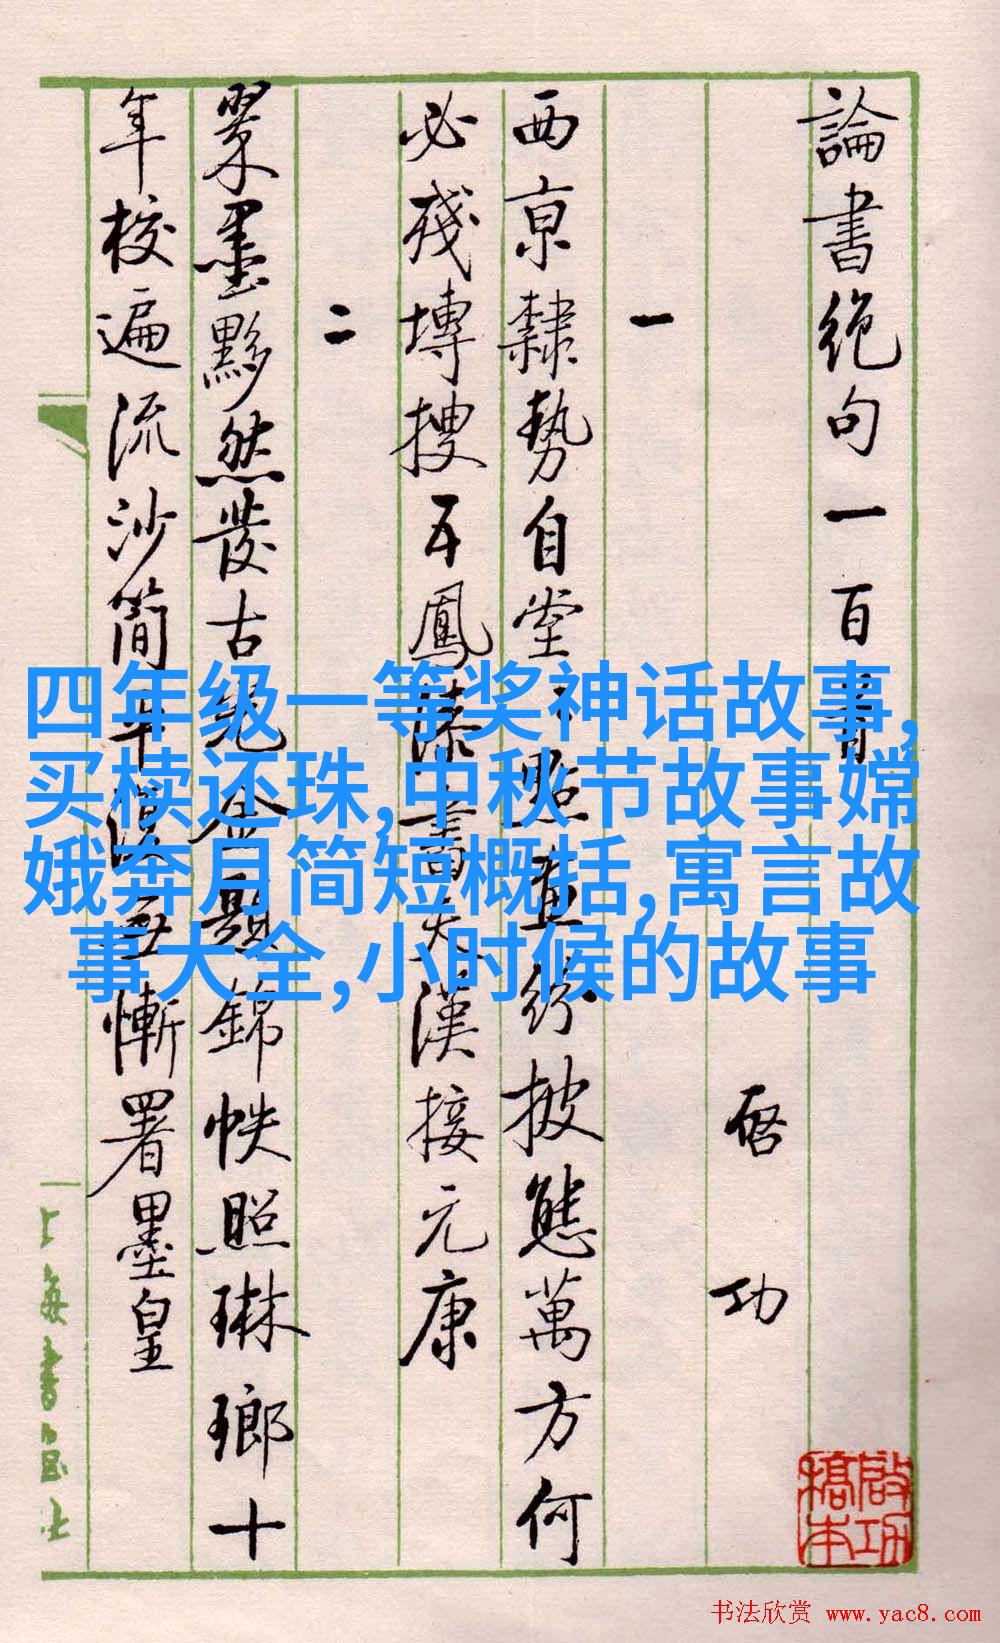 論書絕句一百首
啓功
一
西京隸勢自堂〻點畫紛披態萬方何
必殘塼搜五鳳漆書天漢接元康
二
翠墨黟然發古光金題錦帙照琳瑯十
年校遍流沙簡平復無慚署墨皇
上海書画社
四年级一等奖神话故事,
买椟还珠,中秋节故事嫦
娥奔月简短概括,寓言故
事大全,小时候的故事
啟功
稿本
书法欣赏 www.yac8.com